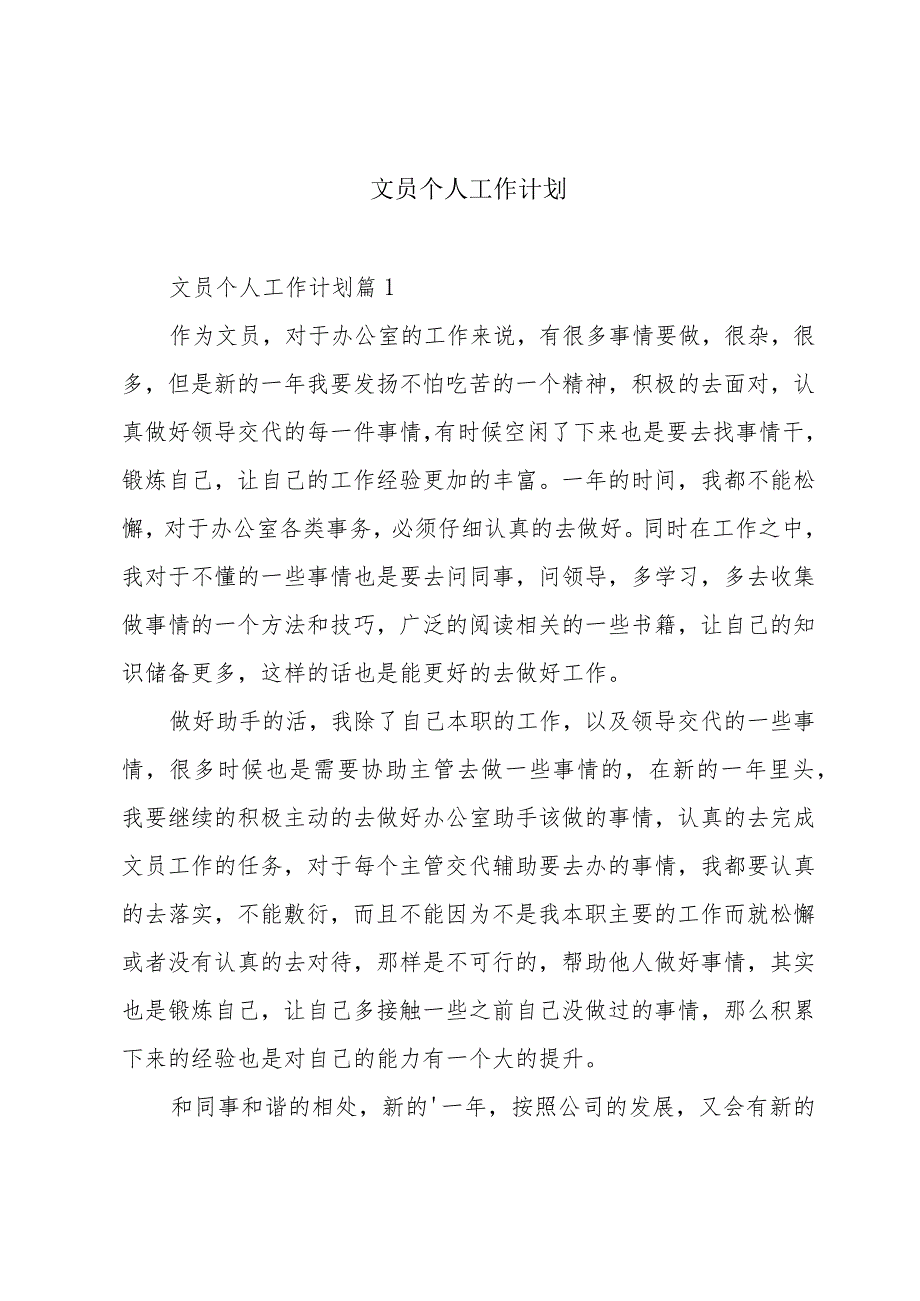 文员个人工作计划
文员个人工作计划篇1
作为文员，对于办公室的工作来说，有很多事情要做，很杂，很
多，但是新的一年我要发扬不怕吃苦的一个精神，积极的去面对，认
真做好领导交代的每一件事情，有时候空闲了下来也是要去找事情干，
锻炼自己，让自己的工作经验更加的丰富。一年的时间，我都不能松
懈，对于办公室各类事务，必须仔细认真的去做好。同时在工作之中，
我对于不懂的一些事情也是要去问同事，问领导，多学习，多去收集
做事情的一个方法和技巧，广泛的阅读相关的一些书籍，让自己的知
识储备更多，这样的话也是能更好的去做好工作。
做好助手的活，我除了自己本职的工作，以及领导交代的一些事
情，很多时候也是需要协助主管去做一些事情的，在新的一年里头，
我要继续的积极主动的去做好办公室助手该做的事情，认真的去完成
文员工作的任务，对于每个主管交代辅助要去办的事情，我都要认真
的去落实，不能敷衍，而且不能因为不是我本职主要的工作而就松懈
或者没有认真的去对待，那样是不可行的，帮助他人做好事情，其实
也是锻炼自己，让自己多接触一些之前自己没做过的事情，那么积累
下来的经验也是对自己的能力有一个大的提升。
和同事和谐的相处，新的'一年，按照公司的发展，又会有新的